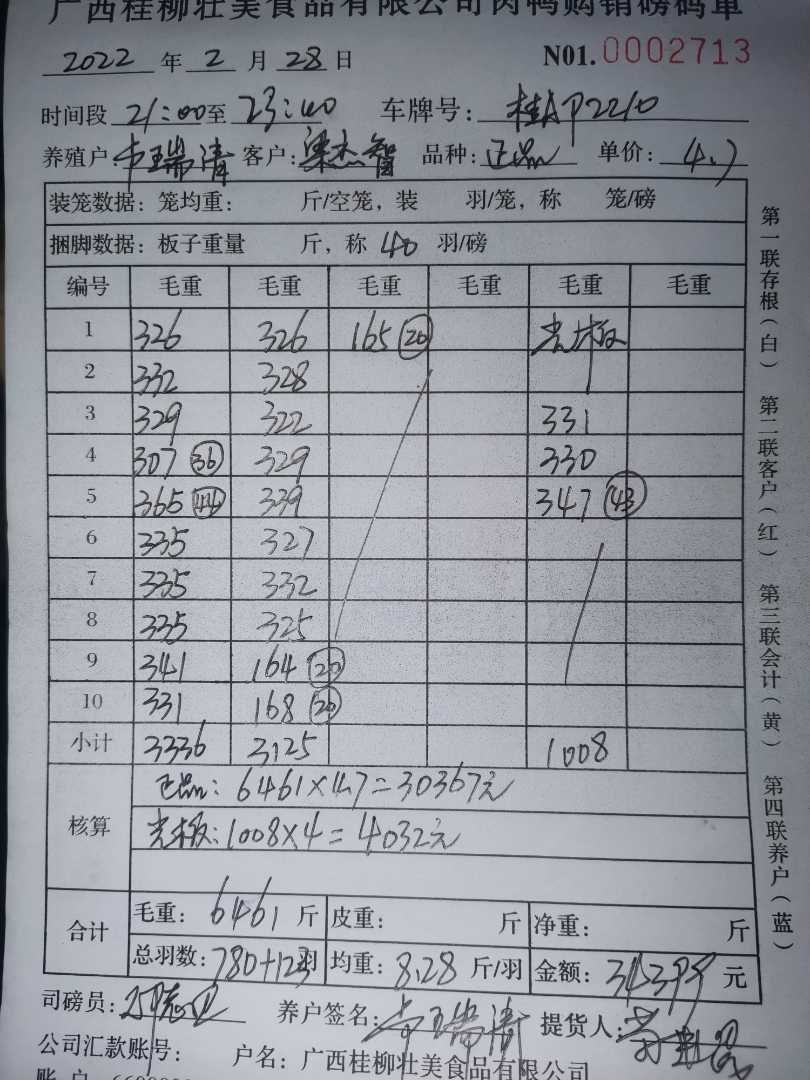 广西桂柳壮美食品有限公司肉鸭购销磅码单
2022 年 2 月 28 日 N01. 0002713
时间段 21:00至 23:40 车牌号: 桂AP2210
养殖户 韦瑞清 客户: 梁杰智 品种: 正品 单价: 4.7
装笼数据: 笼均重: 斤/空笼, 装 羽/笼, 称 笼/磅
捆脚数据: 板子重量 斤, 称 40 羽/磅
编号 毛重 毛重 毛重 毛重 毛重 毛重
1 326 326 165 (20) 光板
2 332 328
3 329 322 331
4 307 (36) 329 330
5 365 (44) 339 347 (43)
6 335 327
7 335 332
8 335 325
9 341 164 (20)
10 331 168 (20)
小计 3336 3125 1008
核算 正品: 6461×4.7=30367元
光板: 1008×4=4032元
合计 毛重: 6461 斤 皮重: 斤 净重: 斤
总羽数: 780+123羽 均重: 8.28 斤/羽 金额: 34399 元
司磅员: 养户签名: 韦瑞清 提货人:
公司汇款账号: 户名: 广西桂柳壮美食品有限公司
账户
第一联存根(白) 第二联客户(红) 第三联会计(黄) 第四联养户(蓝)